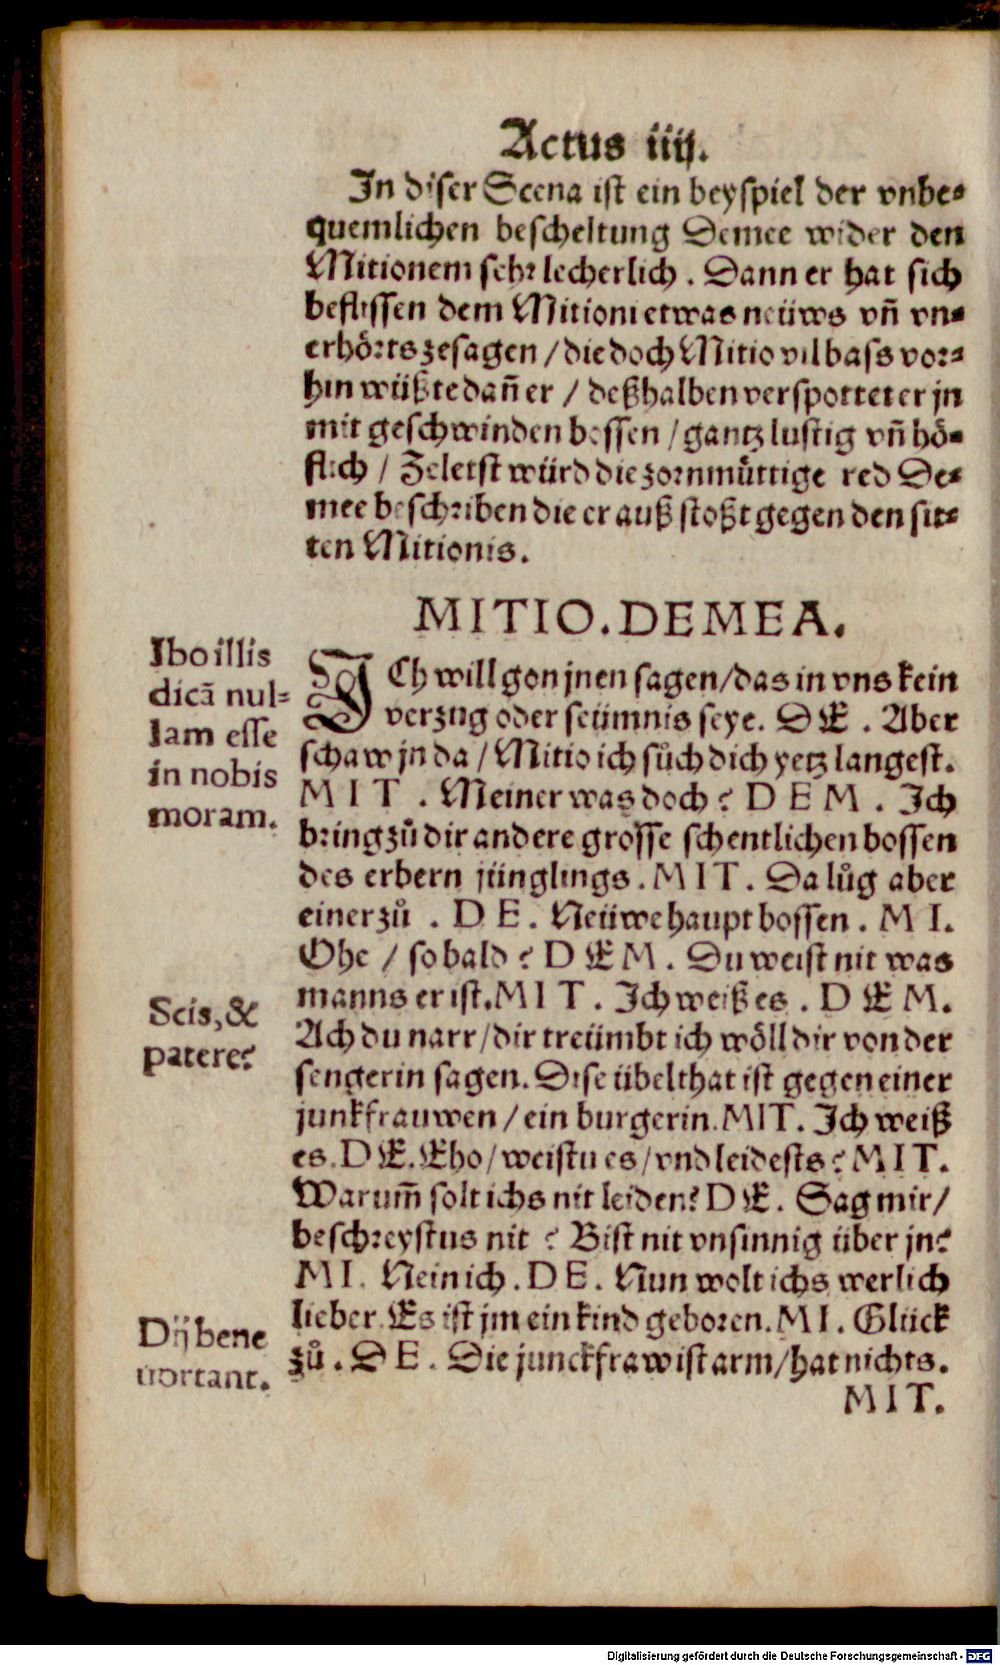 Actus iiij.
In diser Scena ist ein beyspiel der vnbe⸗
quemlichen bescheltung Demee wider den
Mitionem sehr lecherlich. Dann er hat sich
beflissen dem Mitioni etwas neüws vñ vn⸗
erhörts zesagen / die doch Mitio vil bass vor⸗
hin wüßte dañ er / deßhalben verspottet er jn
mit geschwinden bossen / gantz lustig vñ hö⸗
flich / Zeletst würd die zornmüttige red De⸗
mee beschriben die er auß stoßt gegen den sit⸗
ten Mitionis.
MITIO. DEMEA.
Ibo illis
dicā nul⸗
lam esse
in nobis
moram.
ICh will gon jnen sagen / das in vns kein
verzug oder seümnis seye. DE. Aber
schaw jn da / Mitio ich sůch dich yetz langest.
MIT. Meiner was doch? DEM. Ich
bring zů dir andere grosse schentlichen bossen
des erbern jünglings. MIT. Da lůg aber
einer zů. DE. Neüwe haupt bossen. MI.
Ohe / so bald? DEM. Du weist nit was
manns er ist. MIT. Ich weiß es. DEM.
Scis, &
patere?
Ach du narr / dir treümbt ich wöll dir von der
sengerin sagen. Dise übelthat ist gegen einer
junkfrauwen / ein burgerin. MIT. Ich weiß
es. DE. Eho / weistu es / vnd leidests? MIT.
Warum̃ solt ichs nit leiden? DE. Sag mir /
beschreystus nit? Bist nit vnsinnig über jn?
MI. Nein ich. DE. Nun wolt ichs werlich
lieber. Es ist jm ein kind geboren. MI. Glück
Dij bene
uortant.
zů. DE. Die junckfraw ist arm / hat nichts.
MIT.
Digitalisierung gefördert durch die Deutsche Forschungsgemeinschaft - DFG